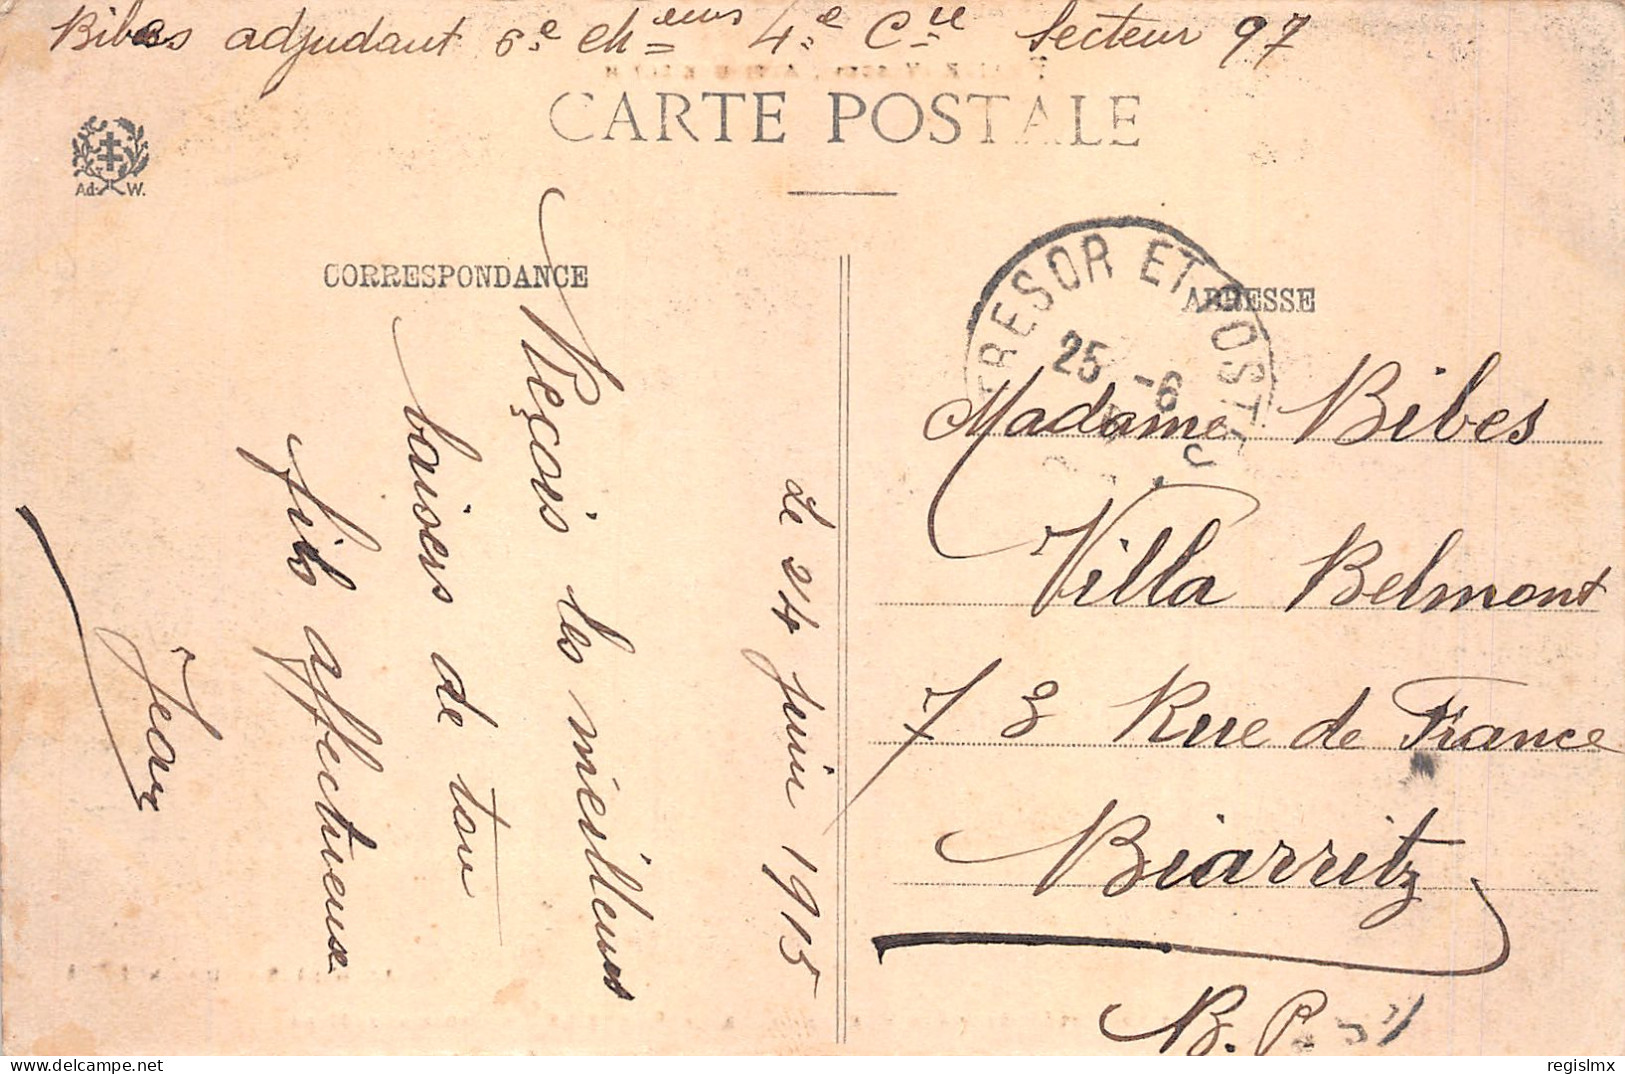 Bibes adjudant 6e cheurs 4e Cie Secteur 97
CARTE POSTALE
Ad. W.
CORRESPONDANCE
ADRESSE
TRESOR ET POSTES
25 -6
Le 24 juin 1915
Reçois les meilleures
baisers de ton
fils affectueux
Jean
Madame Bibes
Villa Belmont
73 Rue de France
Biarritz
B. P.
regislmx